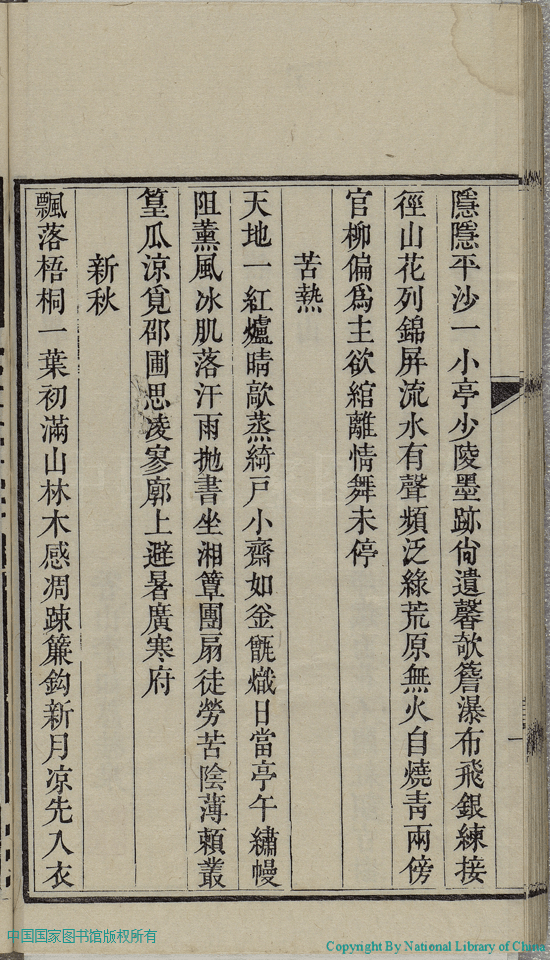 隱隱平沙一小亭少陵墨跡尙遺馨欹簷瀑布飛銀練接
徑山花列錦屏流水有聲頻泛綠荒原無火自燒靑兩傍
官柳偏爲主欲綰離情舞未停
苦熱
天地一紅爐晴歊蒸綺戸小齋如釡甑熾日當亭午繡幔
阻薰風冰肌落汗雨拋書坐湘簟團扇徒勞苦陰薄賴叢
篁瓜涼覓邵圃思凌寥廓上避暑廣寒府
新秋
飄落梧桐一葉初滿山林木感凋踈簾鈎新月凉先入衣
中国国家图书馆版权所有
Copyright By National Library of China